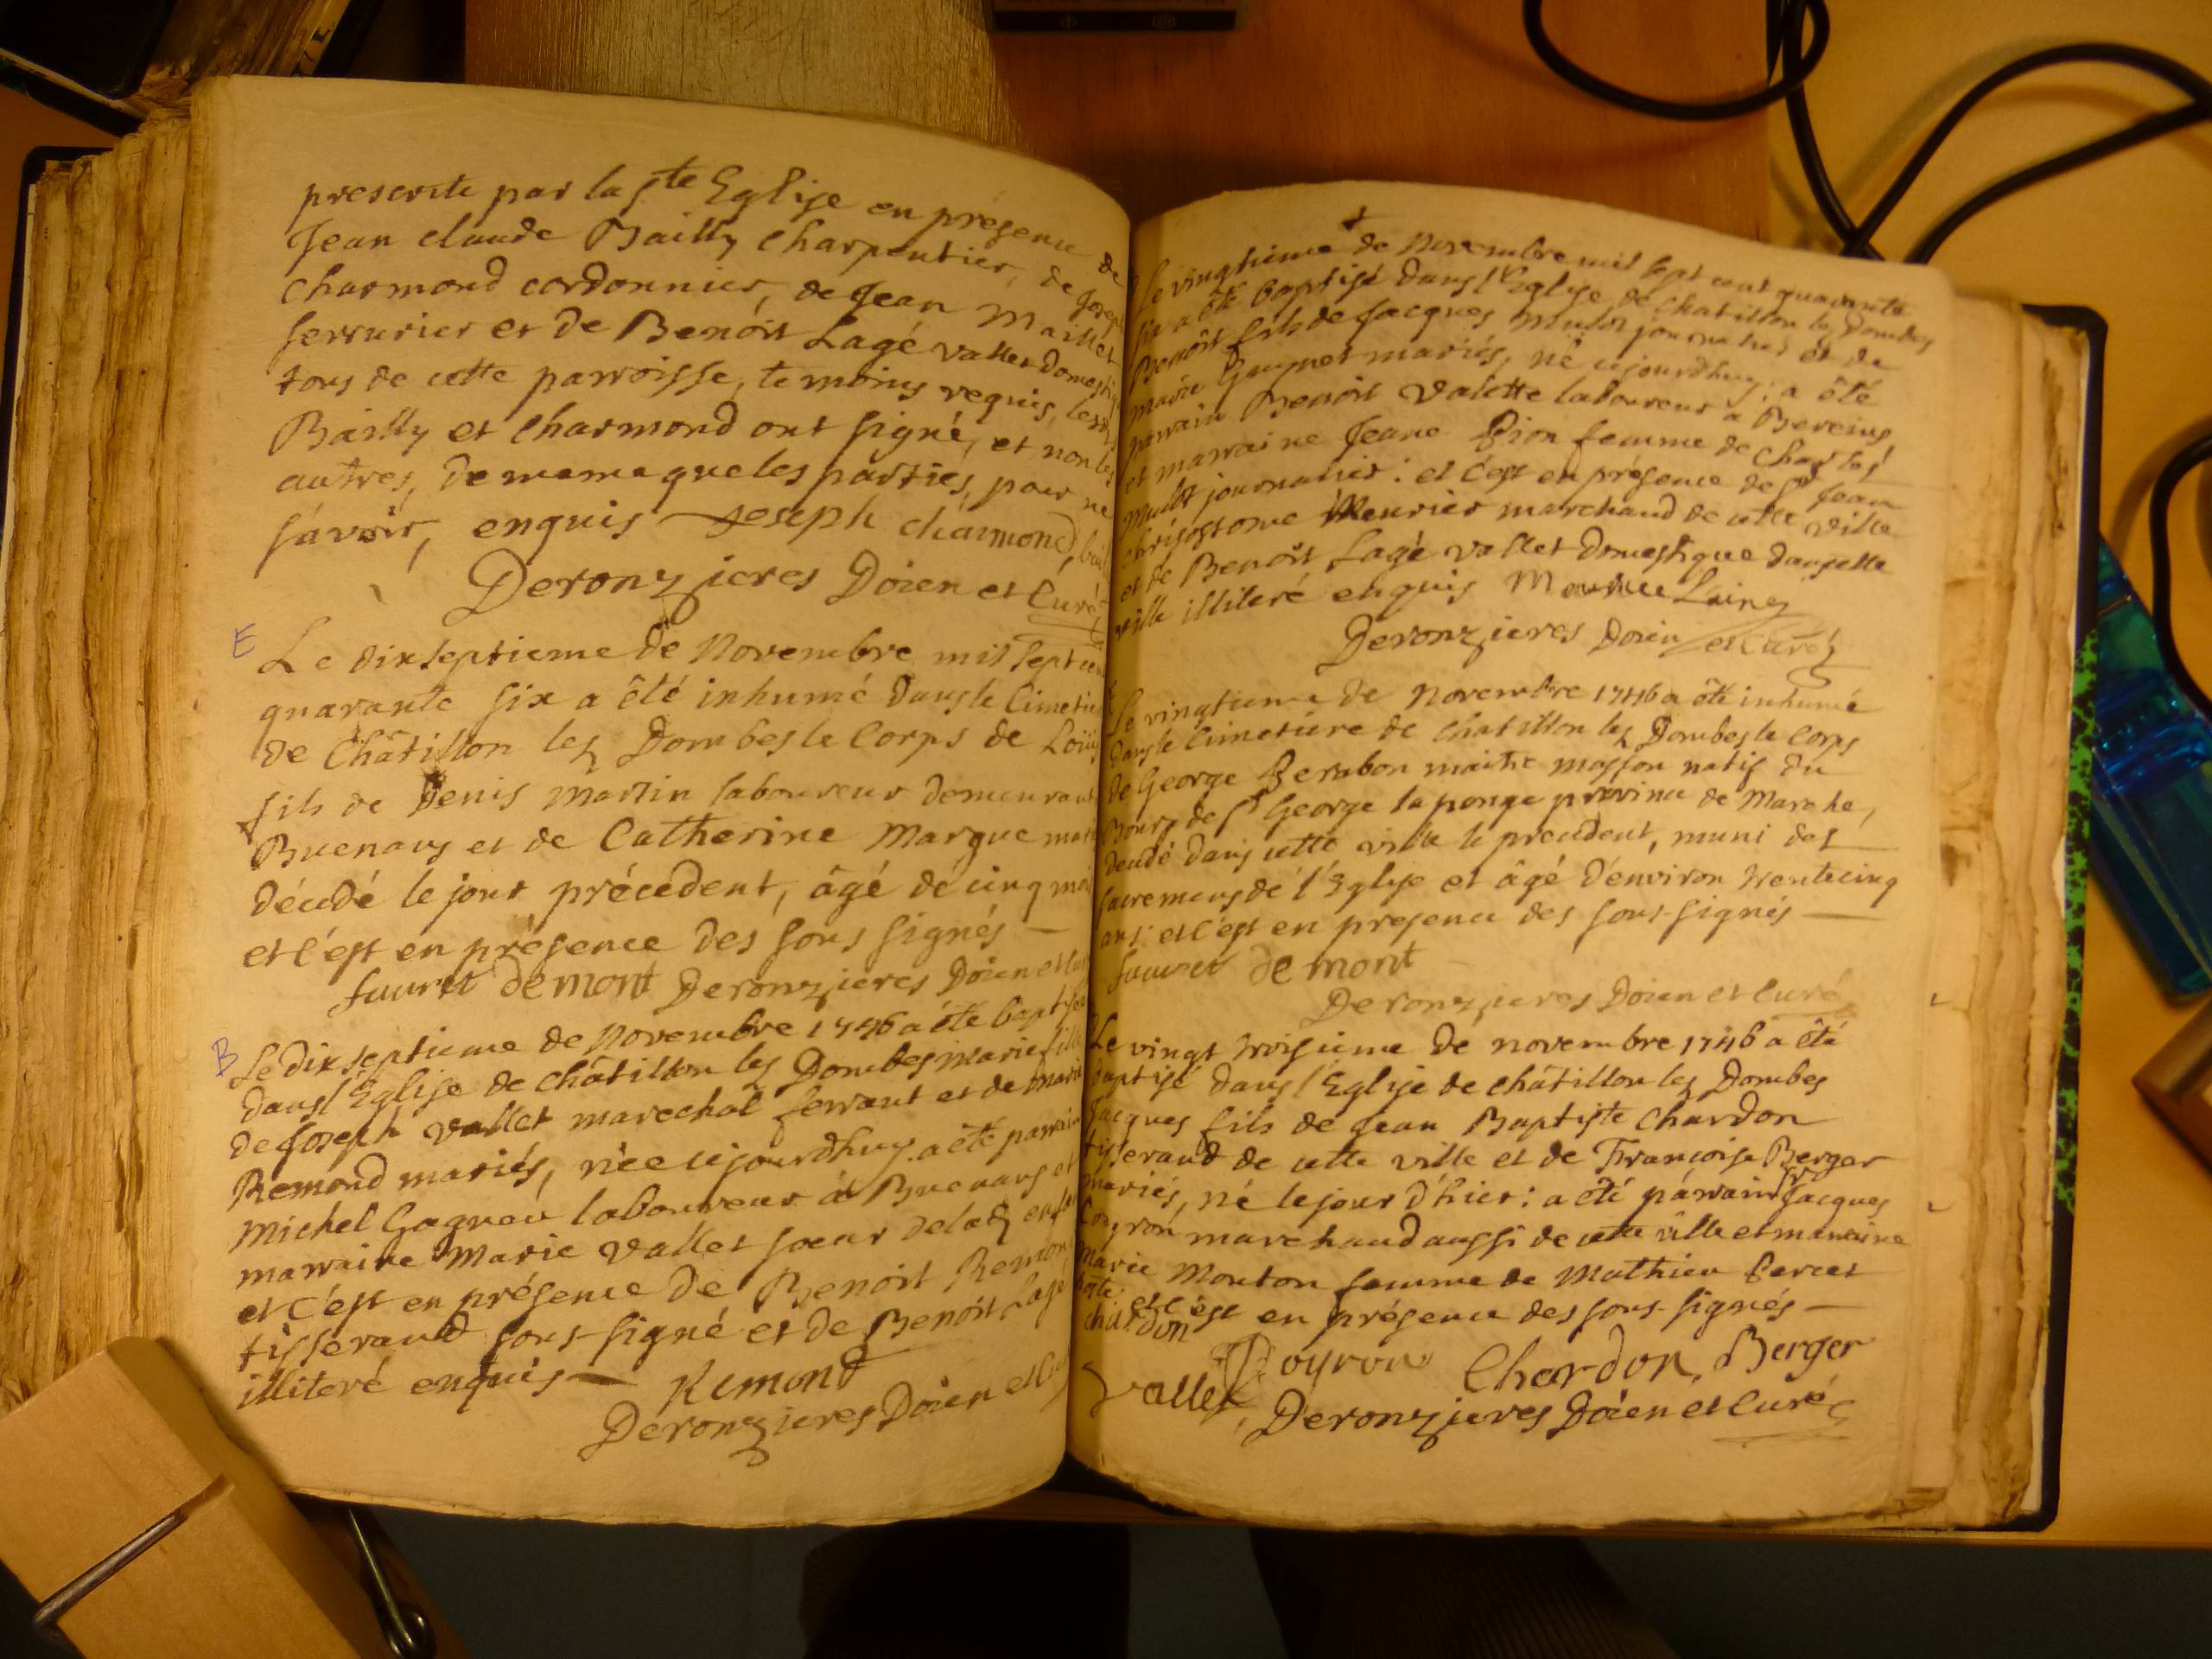 prescrite par la Ste Eglise en présence de
Jean claude Bailly charpentier, de Joseph
charmond cordonnier, de Jean Maillet
serrurier et de Benôit Lagé vallet domestiq
tous de cette parroisse, temoins requis, lesd
Bailly et charmond ont signé, et non les
autres, de meme que les parties, pour ne
sávoir, enquis Joseph charmond
Deronzieres Doien et Curé
E
Le dixseptieme de Novembre mil sept cen
quarante six a êté inhumé dans le Cimetie
de Châtillon lez Dombes le Corps de Loüis
fils de Denis Martin laboureur demeurant
Buenans et de Catherine Margue mar
décédé le jour précedent, âgé de cinq moi
et c'est en présence des sous signés —
fauret demont Deronzieres Doien et Cur
B
Le dixseptieme de Novembre 1746 a êté baptisé
dans l'Eglise de châtillon les Dombes Marie fille
de Joseph vallet marechal ferrant et de marie
Remond mariés, née cejourdhuy. a êté parrain
Michel Gagneou laboureur à Buenans et
marraine Marie vallet soeur de lad enfan
et c'est en présence de Benoit Remon
tisserand sous-signé et de Benoit Lagé
illiteré enquis — Remond
Deronzieres Doien et Cu
Le vingtieme de Novembre mil sept cent quarante
six a êté baptisé dans l'Eglise de chatillon les Dombes
Benôit fils de Jacques Mulot journalier et de
marie Guynet mariés, né cejourdhuy; a êté
parrain Benoit Valette laboureur a Bereins
et marraine Jeane Pion femme de charles
Mulot journalier: et c'est en présence de Sr Jean
chrisostome Meurier marchand de cette ville
et de Benoit Lagé vallet domestique dans cette
ville illiteré enquis
Deronzieres Doien et Curé
Le vingtieme de Novembre 1746 a êté inhumé
dans le Cimetiere de Chatillon lez Dombes le Corps
de George Berabon maitre masson natif du
Bourg de St George la ponge province de Marche,
decédé dans cette ville le precedent, muni des
sacremens de l'Eglise et âgé d'énviron trentecinq
ans: et c'est en presence des sous-signés —
fauret de mont
Deronzieres Doien et Curé
Le vingt troisieme de novembre 1746 a êté
baptisé dans l'Eglise de châtillon lez Dombes
Jacques fils de Jean Baptiste chardon
tisserand de cette ville et de Francoise Berger
mariés, né le jour d'hier: a êté párrain Sr Jacques
marchand aussi de cette ville et maraine
Marie Mouton femme de Mathieu Perret
hôte: et c'est en présence des sous-signés —
chardon
Poyron Chardon, Berger
Vallet, Deronzieres Doien et Curé